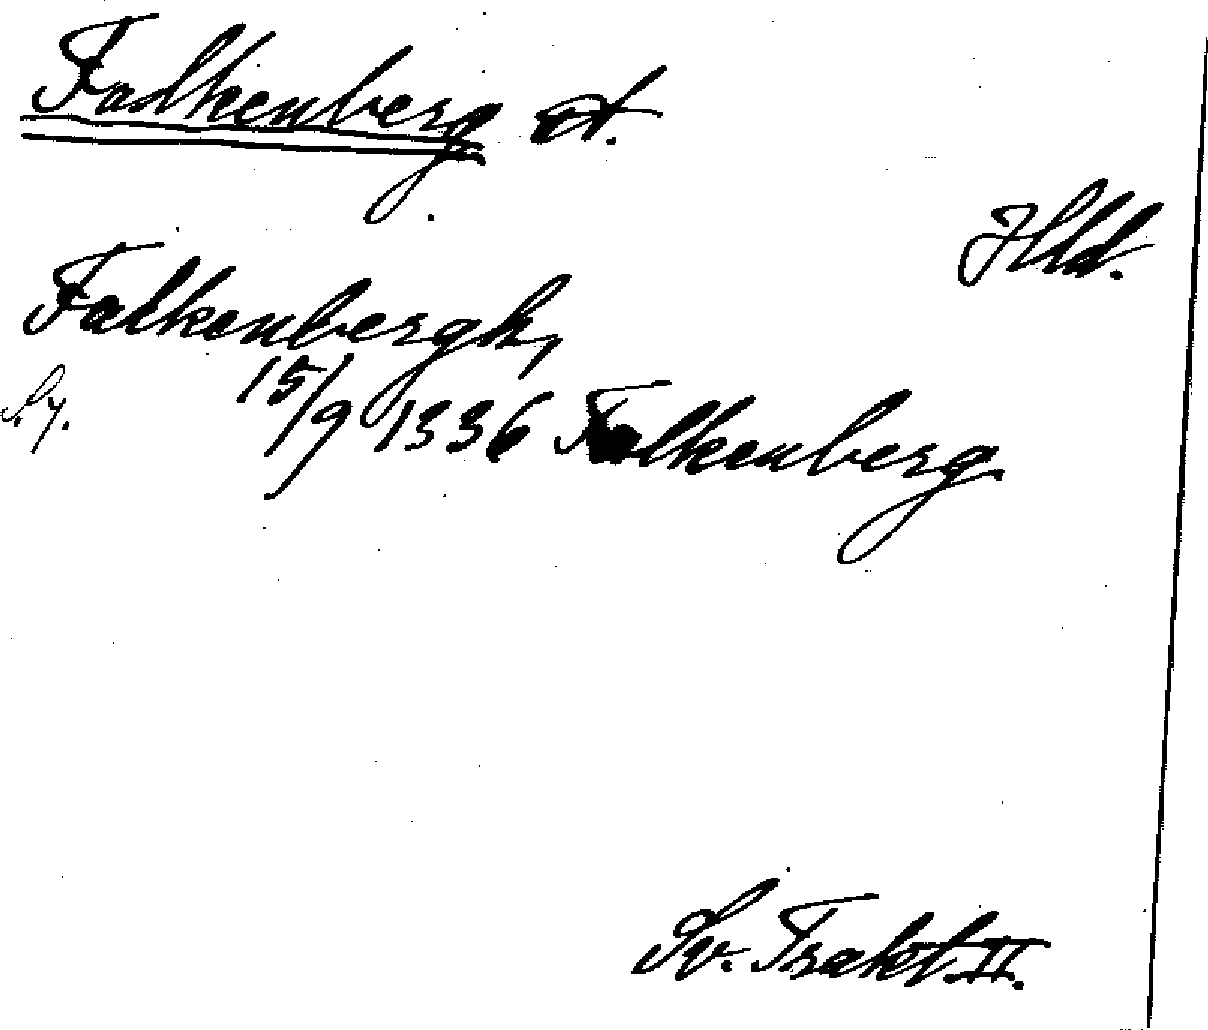 Falkenberg st.
Hld.
Falkenbergh,
15/9 1336 Falkenberg.
Sv. Trakt. II.